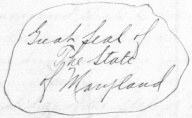 Great Seal of
The State
of Maryland